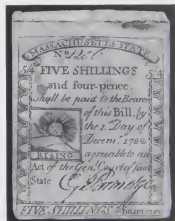 MASSACHUSETTS STATE
No
5/4
FIVE SHILLINGS
5/4
and four-pence.
shall be paid to the Bearer
of this Bill, by
the 1. Day of
Decemr. 178
agreeable to an
RISING
Act of the Genl. Court of said
State
FIVE SHILLINGS